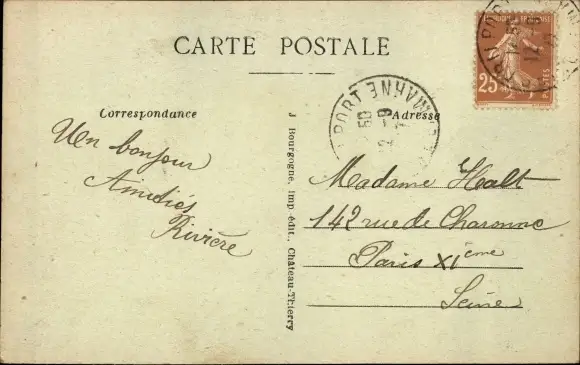 CARTE POSTALE
Correspondance
Adresse
Un bonjour
Amitiés
Rivière
J. Bourgogne, imp.-édit., Château-Thierry
Madame Halt
142 rue de Charonne
Paris XIème
Seine
25
POSTES
PORT
MARNE